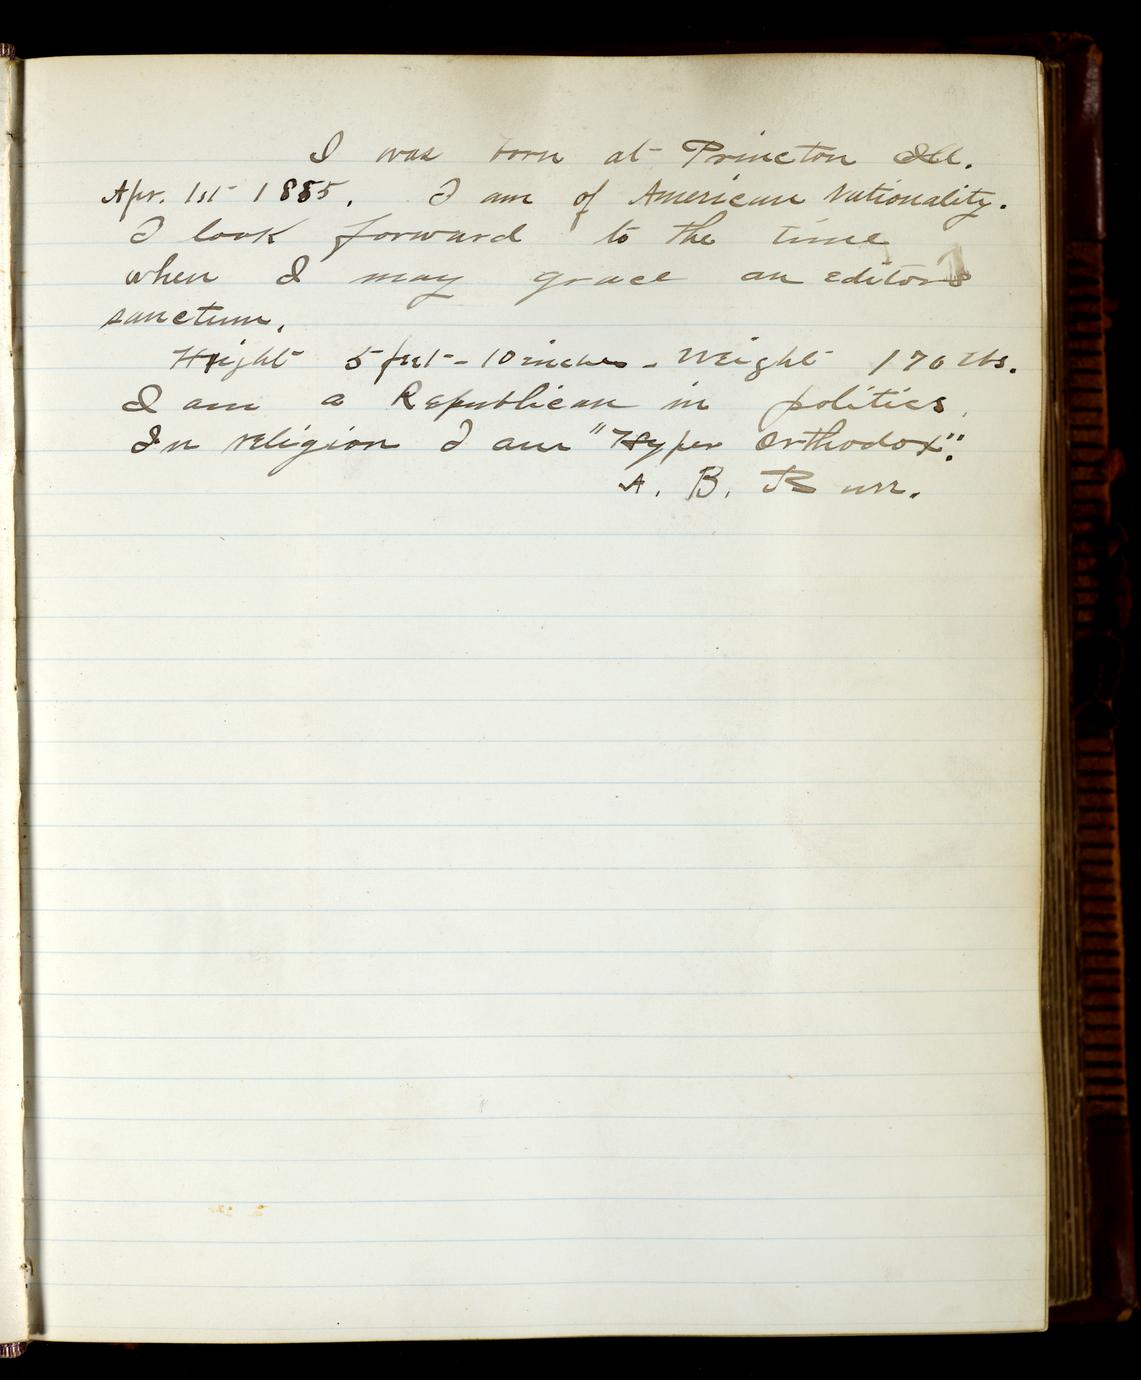 I was born at Princton Ill.
Apr. 1st 1855. I am of American Nationality.
I look forward to the time
when I may grace an editors
sanctum.
Hight 5 feet - 10 inches - Weight 170 lbs.
I am a Republican in politics.
In religion I am "Hyper Orthodox".
A. B. Burr.